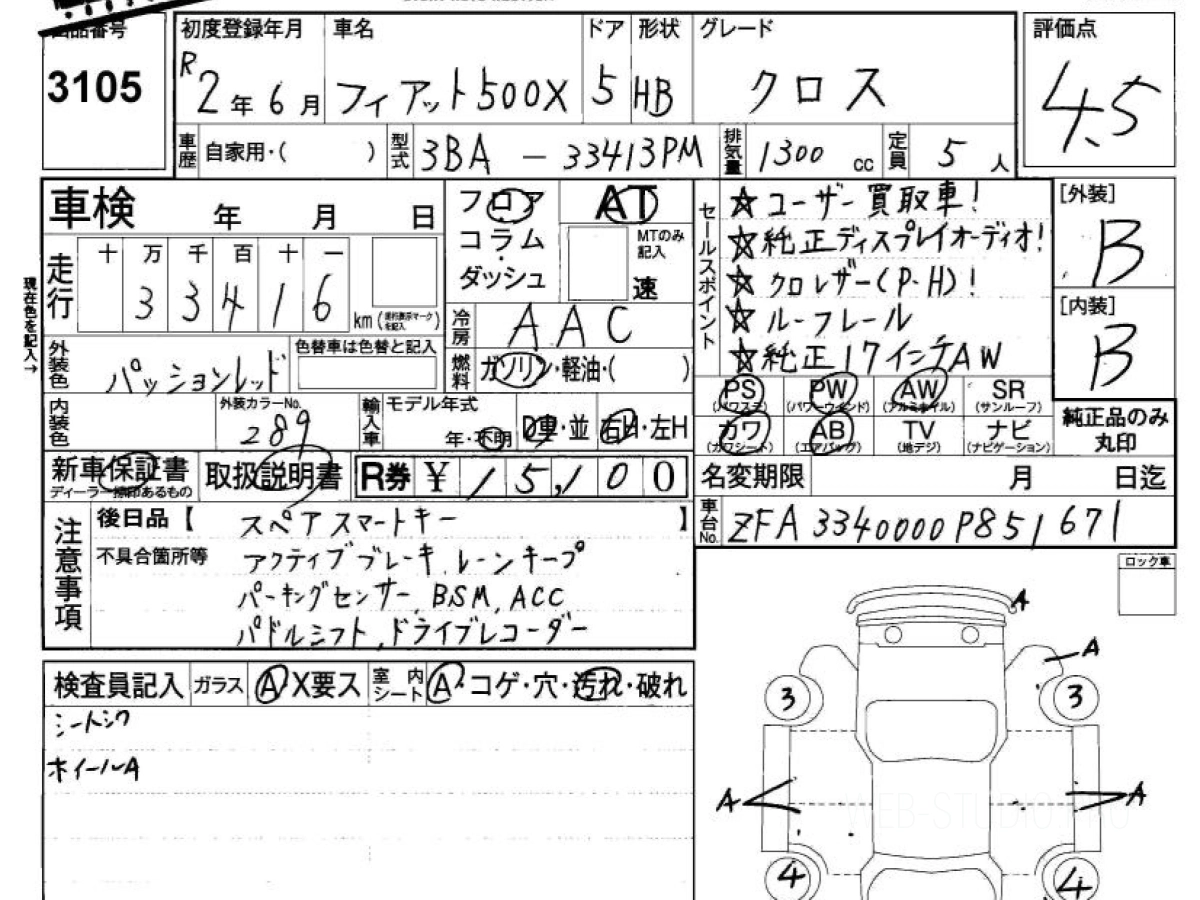 出品番号 初度登録年月 車名 ドア 形状 グレード 評価点
3105 R2年6月 フィアット500X 5 HB クロス 4.5
車歴 自家用・( ) 型式 3BA-33413PM 排気量 1300 cc 定員 5人
車検 年 月 日 フロア AT セールスポイント ☆ユーザー買取車! [外装]
コラム MTのみ記入 ☆純正ディスプレイオーディオ! B
現在色を記入→ 走行 十 万 千 百 十 一 ダッシュ 速 ☆クロレザー(P・H)! [内装]
3 3 4 1 6 km 冷房 AAC ☆ルーフレール B
外装色 パッションレッド 色替車は色替と記入 燃料 ガソリン・軽油・( ) ☆純正17インチAW
内装色 外装カラーNo. 289 輸入車 モデル年式 年・不明 D車・並 右H・左H
PS (パワステ) PW (パワーウインド) AW (アルミホイル) SR (サンルーフ) 純正品のみ丸印
カワ (カワシート) AB (エアバッグ) TV (地デジ) ナビ (ナビゲーション)
新車保証書 ディーラー捺印あるもの 取扱説明書 R券 ¥15,100 名変期限 月 日迄
注意事項 後日品【 スペアスマートキー 】 車台No. ZFA3340000P851671
不具合箇所等 アクティブブレーキ、レーンキープ ロック車
パーキングセンサー、BSM、ACC
パドルシフト、ドライブレコーダー
検査員記入 ガラス A・X要ス 室内シート A・コゲ・穴・汚れ・破れ
シートシワ
ホイールA
A
A
3 3
A A
4 4
WEB-STUDIO.PRO